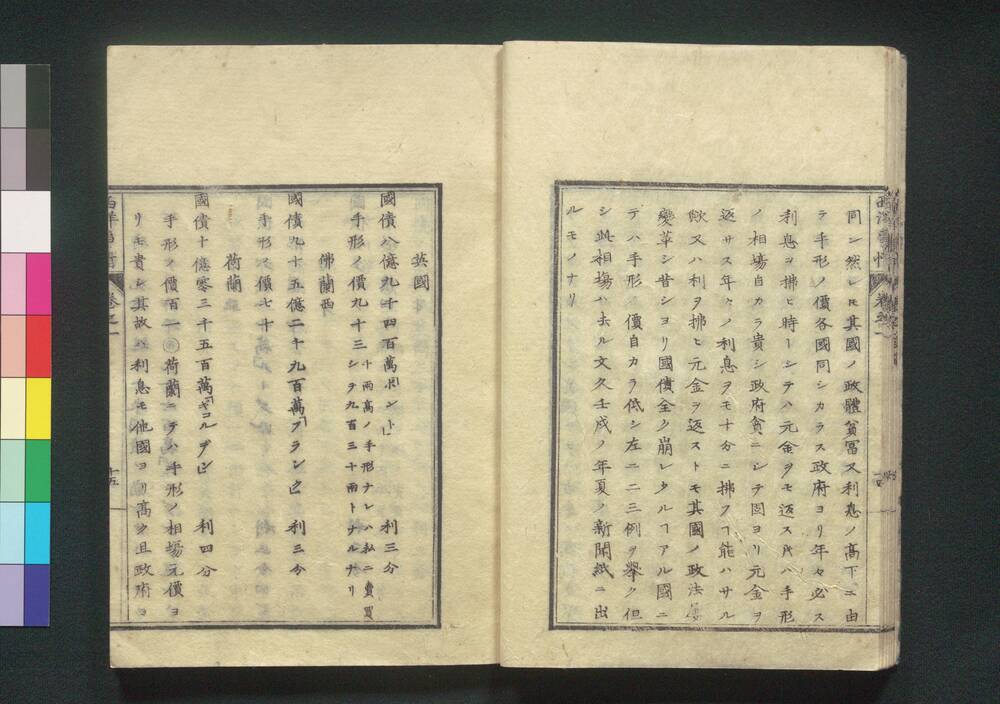 西洋事情
巻之一
同シ然レ𪜈其國ノ政體貧富又利息ノ高下ニ由
ラ手形ノ價各國同シカラス政府ヨリ年々必ス
利息ヲ拂ヒ時トシテハ元金ヲモ返ス𪜈ハ手形
ノ相場自カラ貴シ政府貧ニシテ固ヨリ元金ヲ
返サス年々ノ利息ヲモ十分ニ拂フヿ能ハサル
歟又ハ利ヲ拂ヒ元金ヲ返ストモ其國ノ政法屢
變革シ昔シヨリ國債全ク崩レタルヿアル國ニ
テハ手形ノ價自カラ低シ左ニ二三例ヲ擧ク但
シ此相場ハ去ル文久壬戌ノ年夏ノ新聞紙ニ出
ルモノナリ
英國
國債八億九千四百萬「ポント」 利三分
手形ノ價九十三 十兩高ノ手形ナレハ私ニ賣買
シテ九百三十兩トナルナリ
佛蘭西
國債九十五億二千九百萬「フランク」 利三分
手形ノ價七十
荷蘭
國債十億零三千五百萬「ギュルデン」 利四分
手形ノ價百一 荷蘭ニテハ手形ノ相場元價ヨ
リモ貴シ其故ハ利息モ他國ヨリ高ク且政府ヨ
西洋事情
巻之一
十五